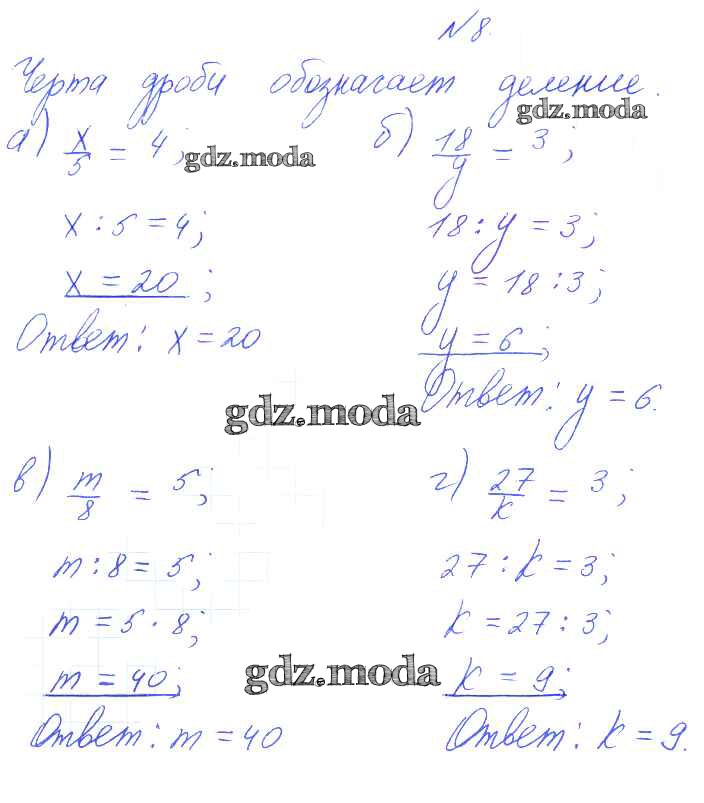 №8.
Черта дроби обозначает деление.
gdz.moda
а) x/5 = 4;
gdz.moda
x : 5 = 4;
x = 20;
Ответ: x = 20
б) 18/y = 3;
18 : y = 3;
y = 18 : 3;
y = 6;
Ответ: y = 6.
gdz.moda
в) m/8 = 5;
m : 8 = 5;
m = 5 · 8;
m = 40;
Ответ: m = 40
gdz.moda
г) 27/k = 3;
27 : k = 3;
k = 27 : 3;
k = 9;
Ответ: k = 9.